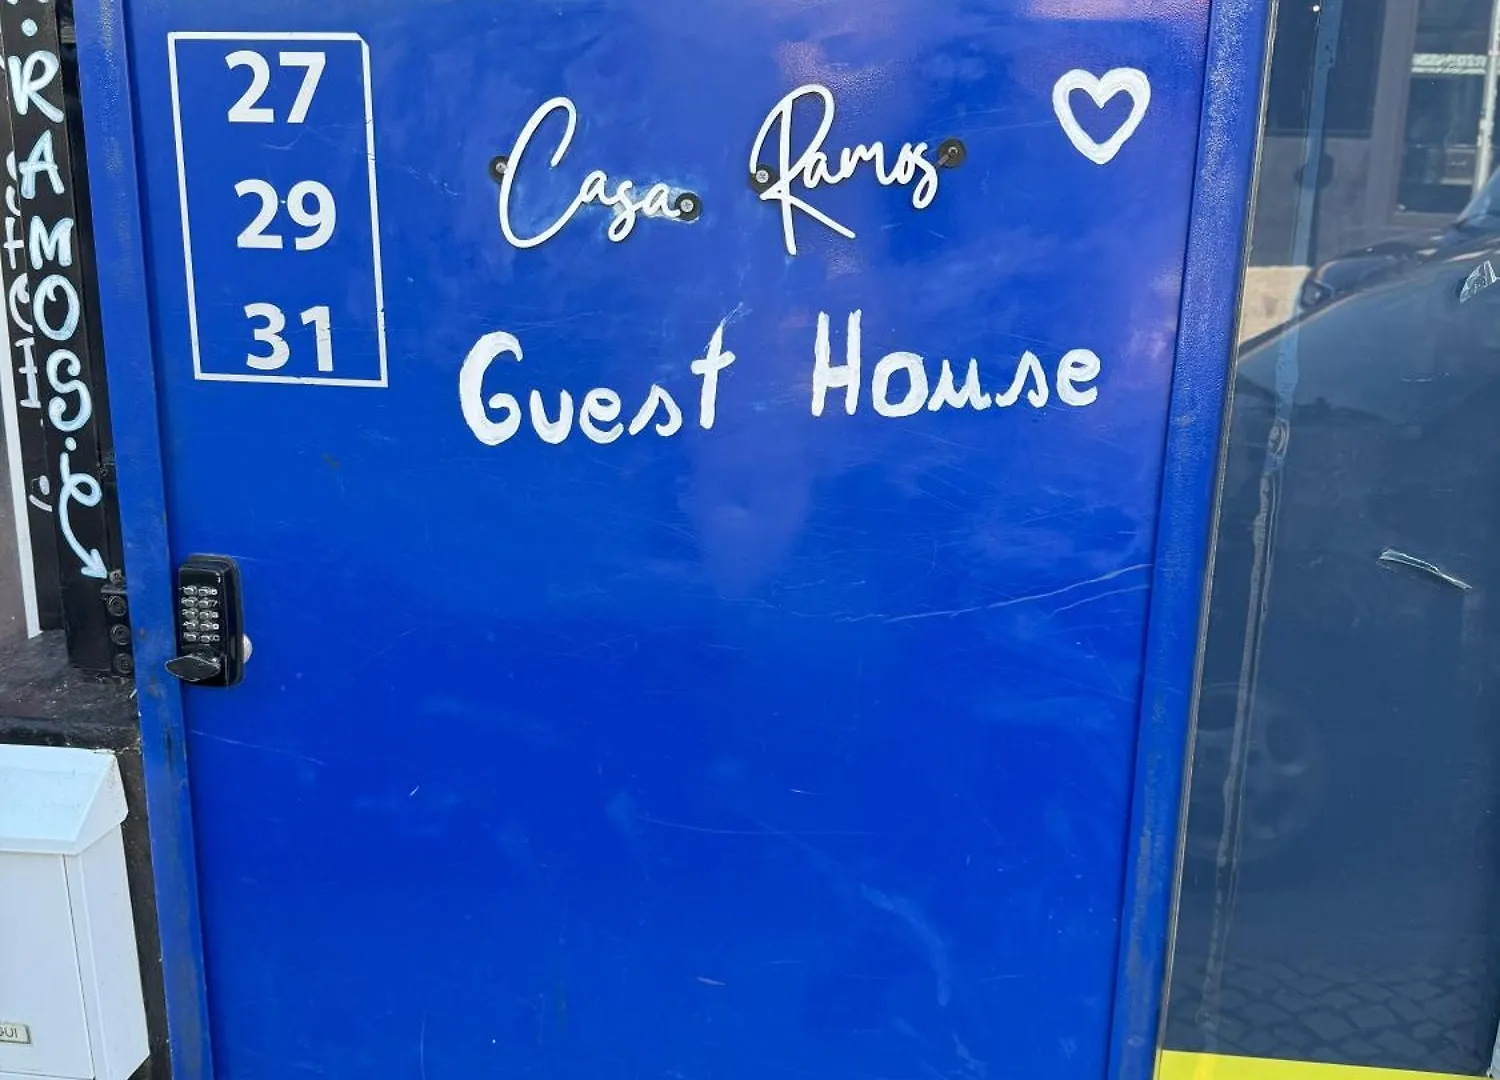 RAMOS
27
29
31
Casa Ramos
Guest House